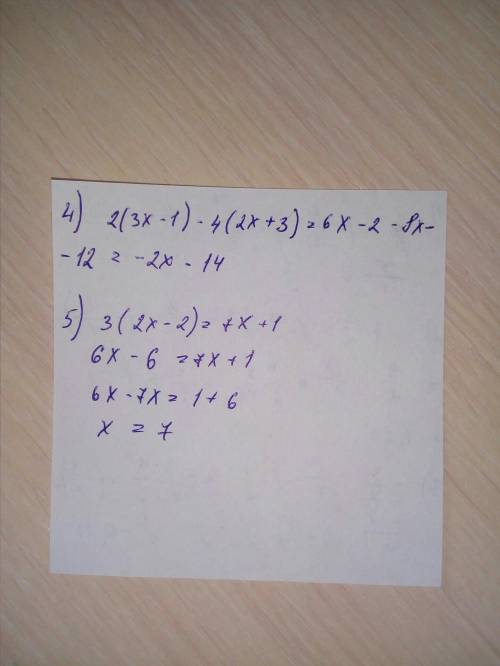 4) 2(3x-1)-4(2x+3)=6x-2-8x-
-12 = -2x-14
5) 3(2x-2)=7x+1
6x-6=7x+1
6x-7x=1+6
x = 7